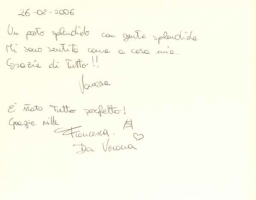 26-02-2006
Un posto splendido con gente splendida
Mi sono sentita come a casa mia.
Grazie di tutto!!
Vanessa
E' stato tutto perfetto!
Grazie mille
Francesca.
Da Verona